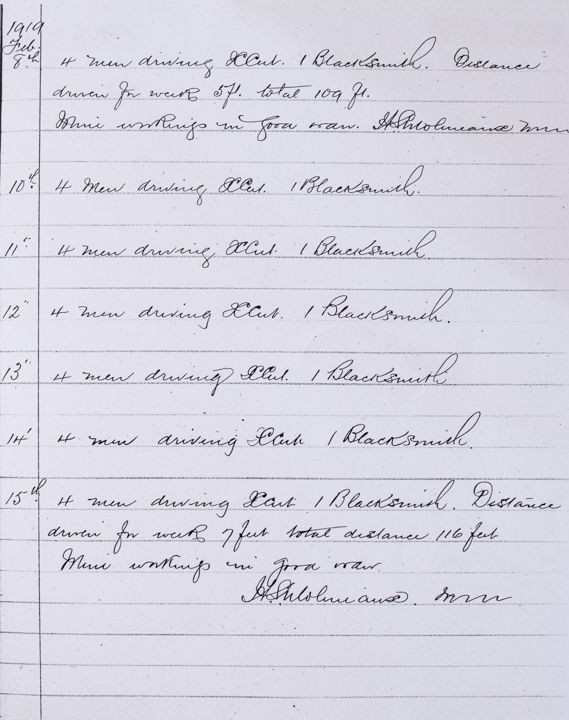 1919
Feb.
8th 4 men driving XCut. 1 Blacksmith. Distance
driven for week 5ft. total 109 ft.
Mine workings in good
10th 4 Men driving XCut. 1 Blacksmith.
11" 4 men driving XCut. 1 Blacksmith
12" 4 men driving XCut. 1 Blacksmith.
13" 4 men driving XCut. 1 Blacksmith
14' 4 men driving XCut 1 Blacksmith.
15th 4 men driving XCut 1 Blacksmith. Distance
driven for week 7 feet total distance 116 feet
Mine workings in good